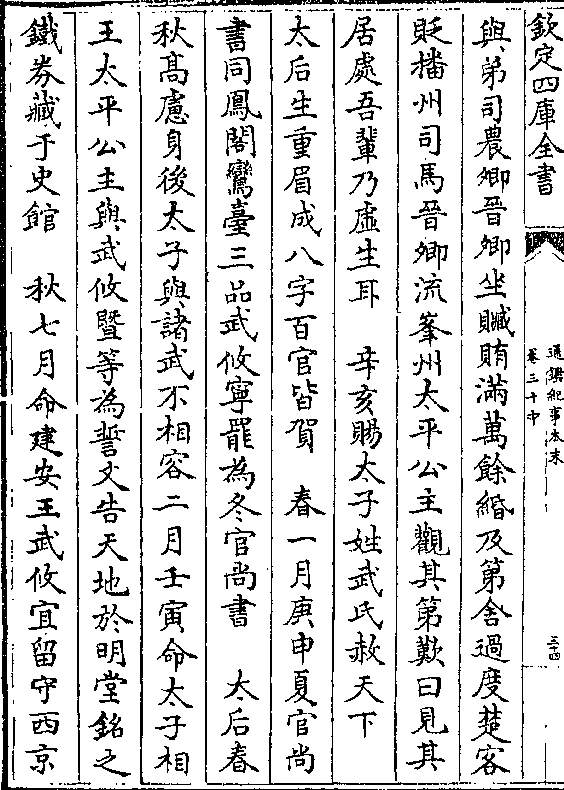 欽定四庫全書
通鑑紀事本末
卷三十中
三十四
與弟司農卿晉卿坐贓賄滿萬餘緡及第舍過度楚客
貶播州司馬晉卿流峯州太平公主觀其第歎曰見其
居處吾輩乃虛生耳　辛亥賜太子姓武氏赦天下
太后生重眉成八字百官皆賀　春一月庚申夏官尚
書同鳳閣鸞臺三品武攸寧罷為冬官尚書　太后春
秋高慮身後太子與諸武不相容二月壬寅命太子相
王太平公主與武攸暨等為誓文告天地於明堂銘之
鐵券藏于史館　秋七月命建安王武攸宜留守西京